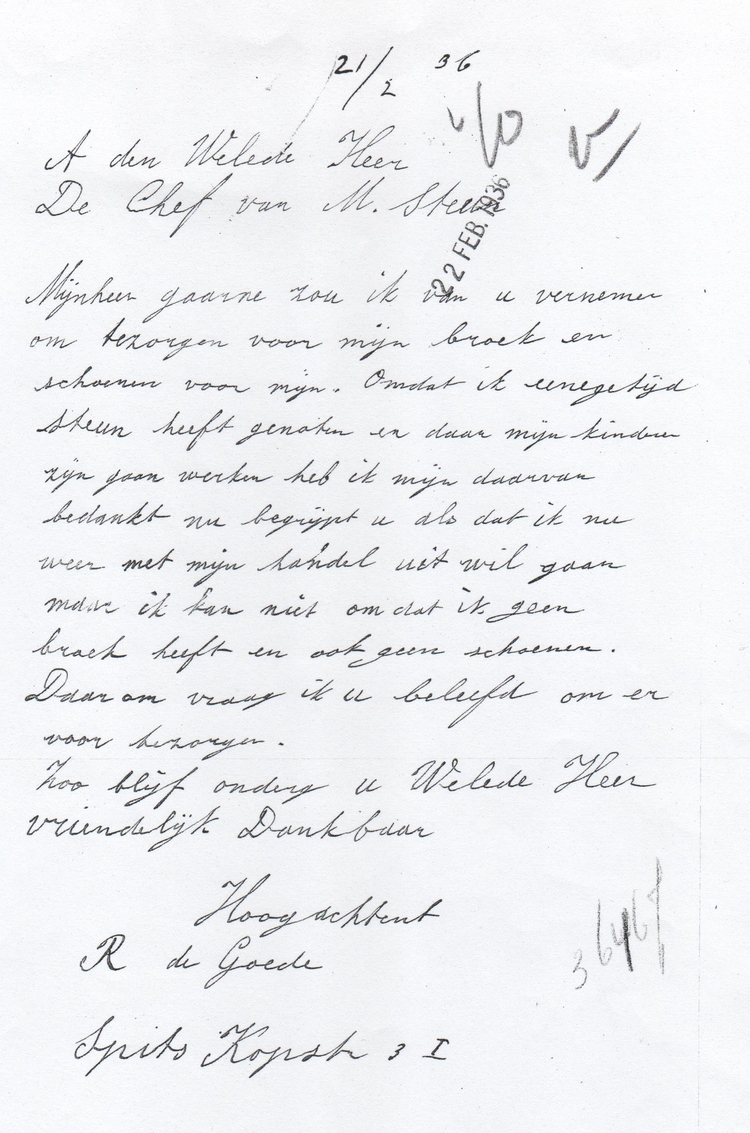 21/2 36
A den Welede Heer
De Chef van M. Steun
22 FEB. 1936
Mijnheer gaarne zou ik van u vernemer
om tezorgen voor mijn broek en
schoenen voor mijn. Omdat ik eenegetijd
steun heeft genoten en daar mijn kinderen
zijn gaan werken heb ik mijn daarvan
bedankt nu begrijpt u als dat ik nu
weer met mijn handel uit wil gaan
maar ik kan niet omdat ik geen
broek heeft en ook geen schoenen.
Daarom vraag ik u beleefd om er
voor tezorgen.
Zoo blijf onderg u Welede Heer
vriendelijk Dankbaar
Hoogachtent
R de Goede
Spits Kopstr 3 I